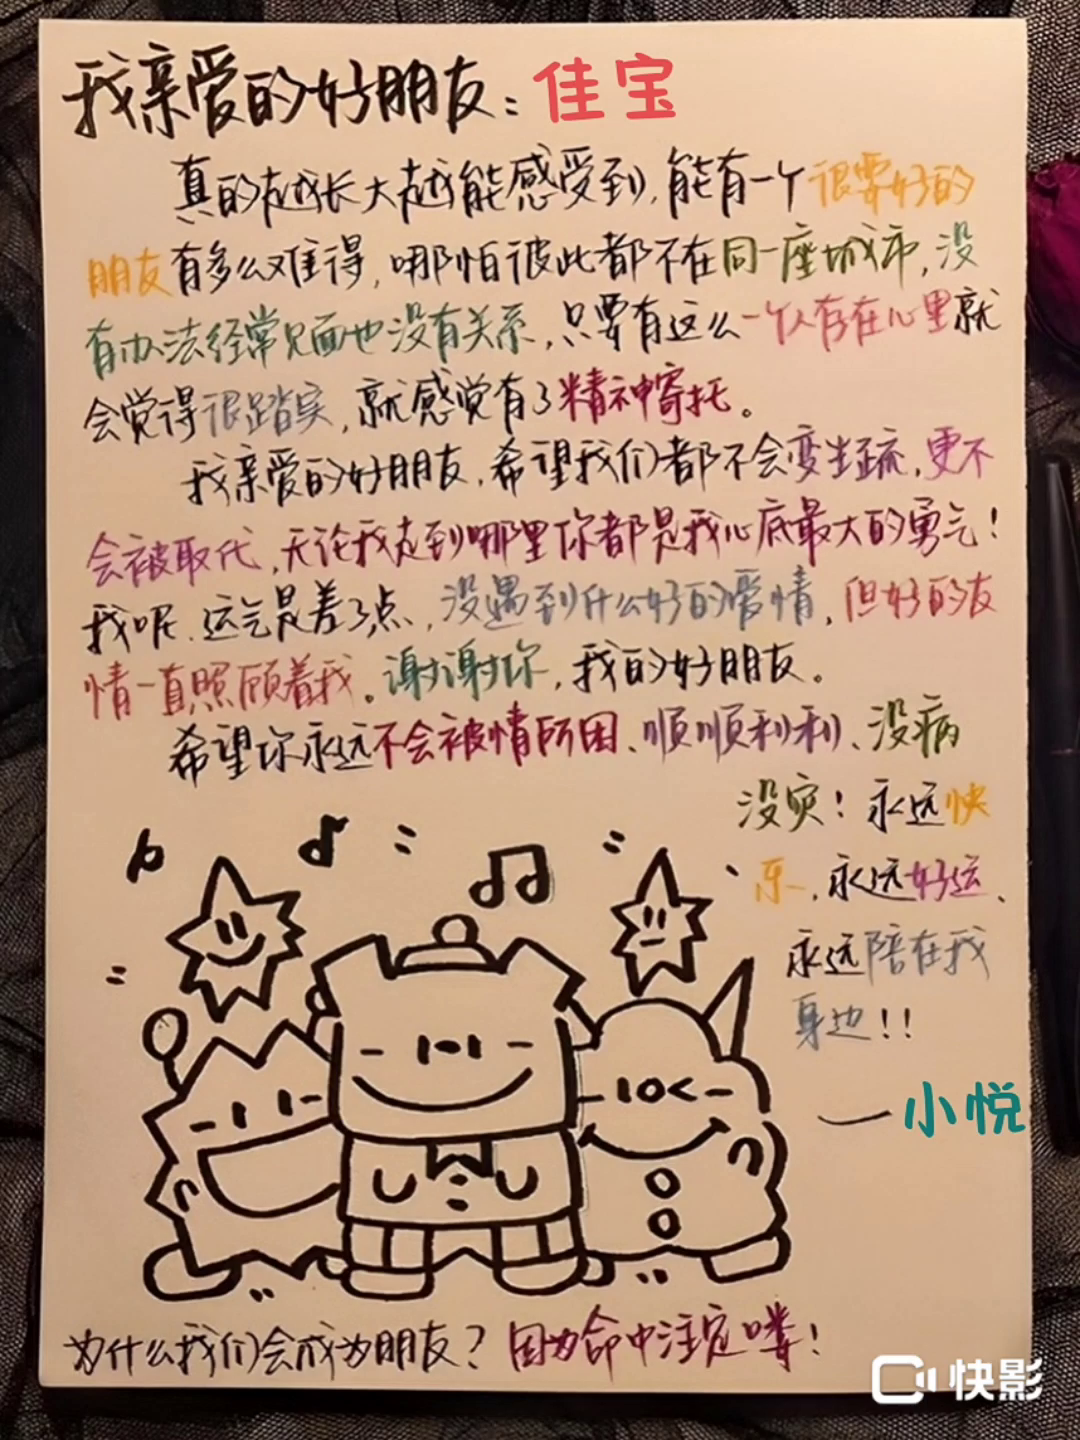 我亲爱的好朋友：佳宝
真的越长大越能感受到，能有一个很要好的
朋友有多么难得，哪怕彼此都不在同一座城市，没
有办法经常见面也没有关系，只要有这么一个人存在心里就
会觉得很踏实，就感觉有了精神寄托。
我亲爱的好朋友，希望我们都不会变生疏，更不
会被取代，无论我走到哪里你都是我心底最大的勇气！
我呢、运气是差了点，没遇到什么好的爱情，但好的友
情一直照顾着我。谢谢你，我的好朋友。
希望你永远不会被情所困、顺顺利利、没病
没灾！永远快
乐，永远好运、
永远陪在我
身边！！
一小悦
为什么我们会成为朋友？因为命中注定喽！
快影